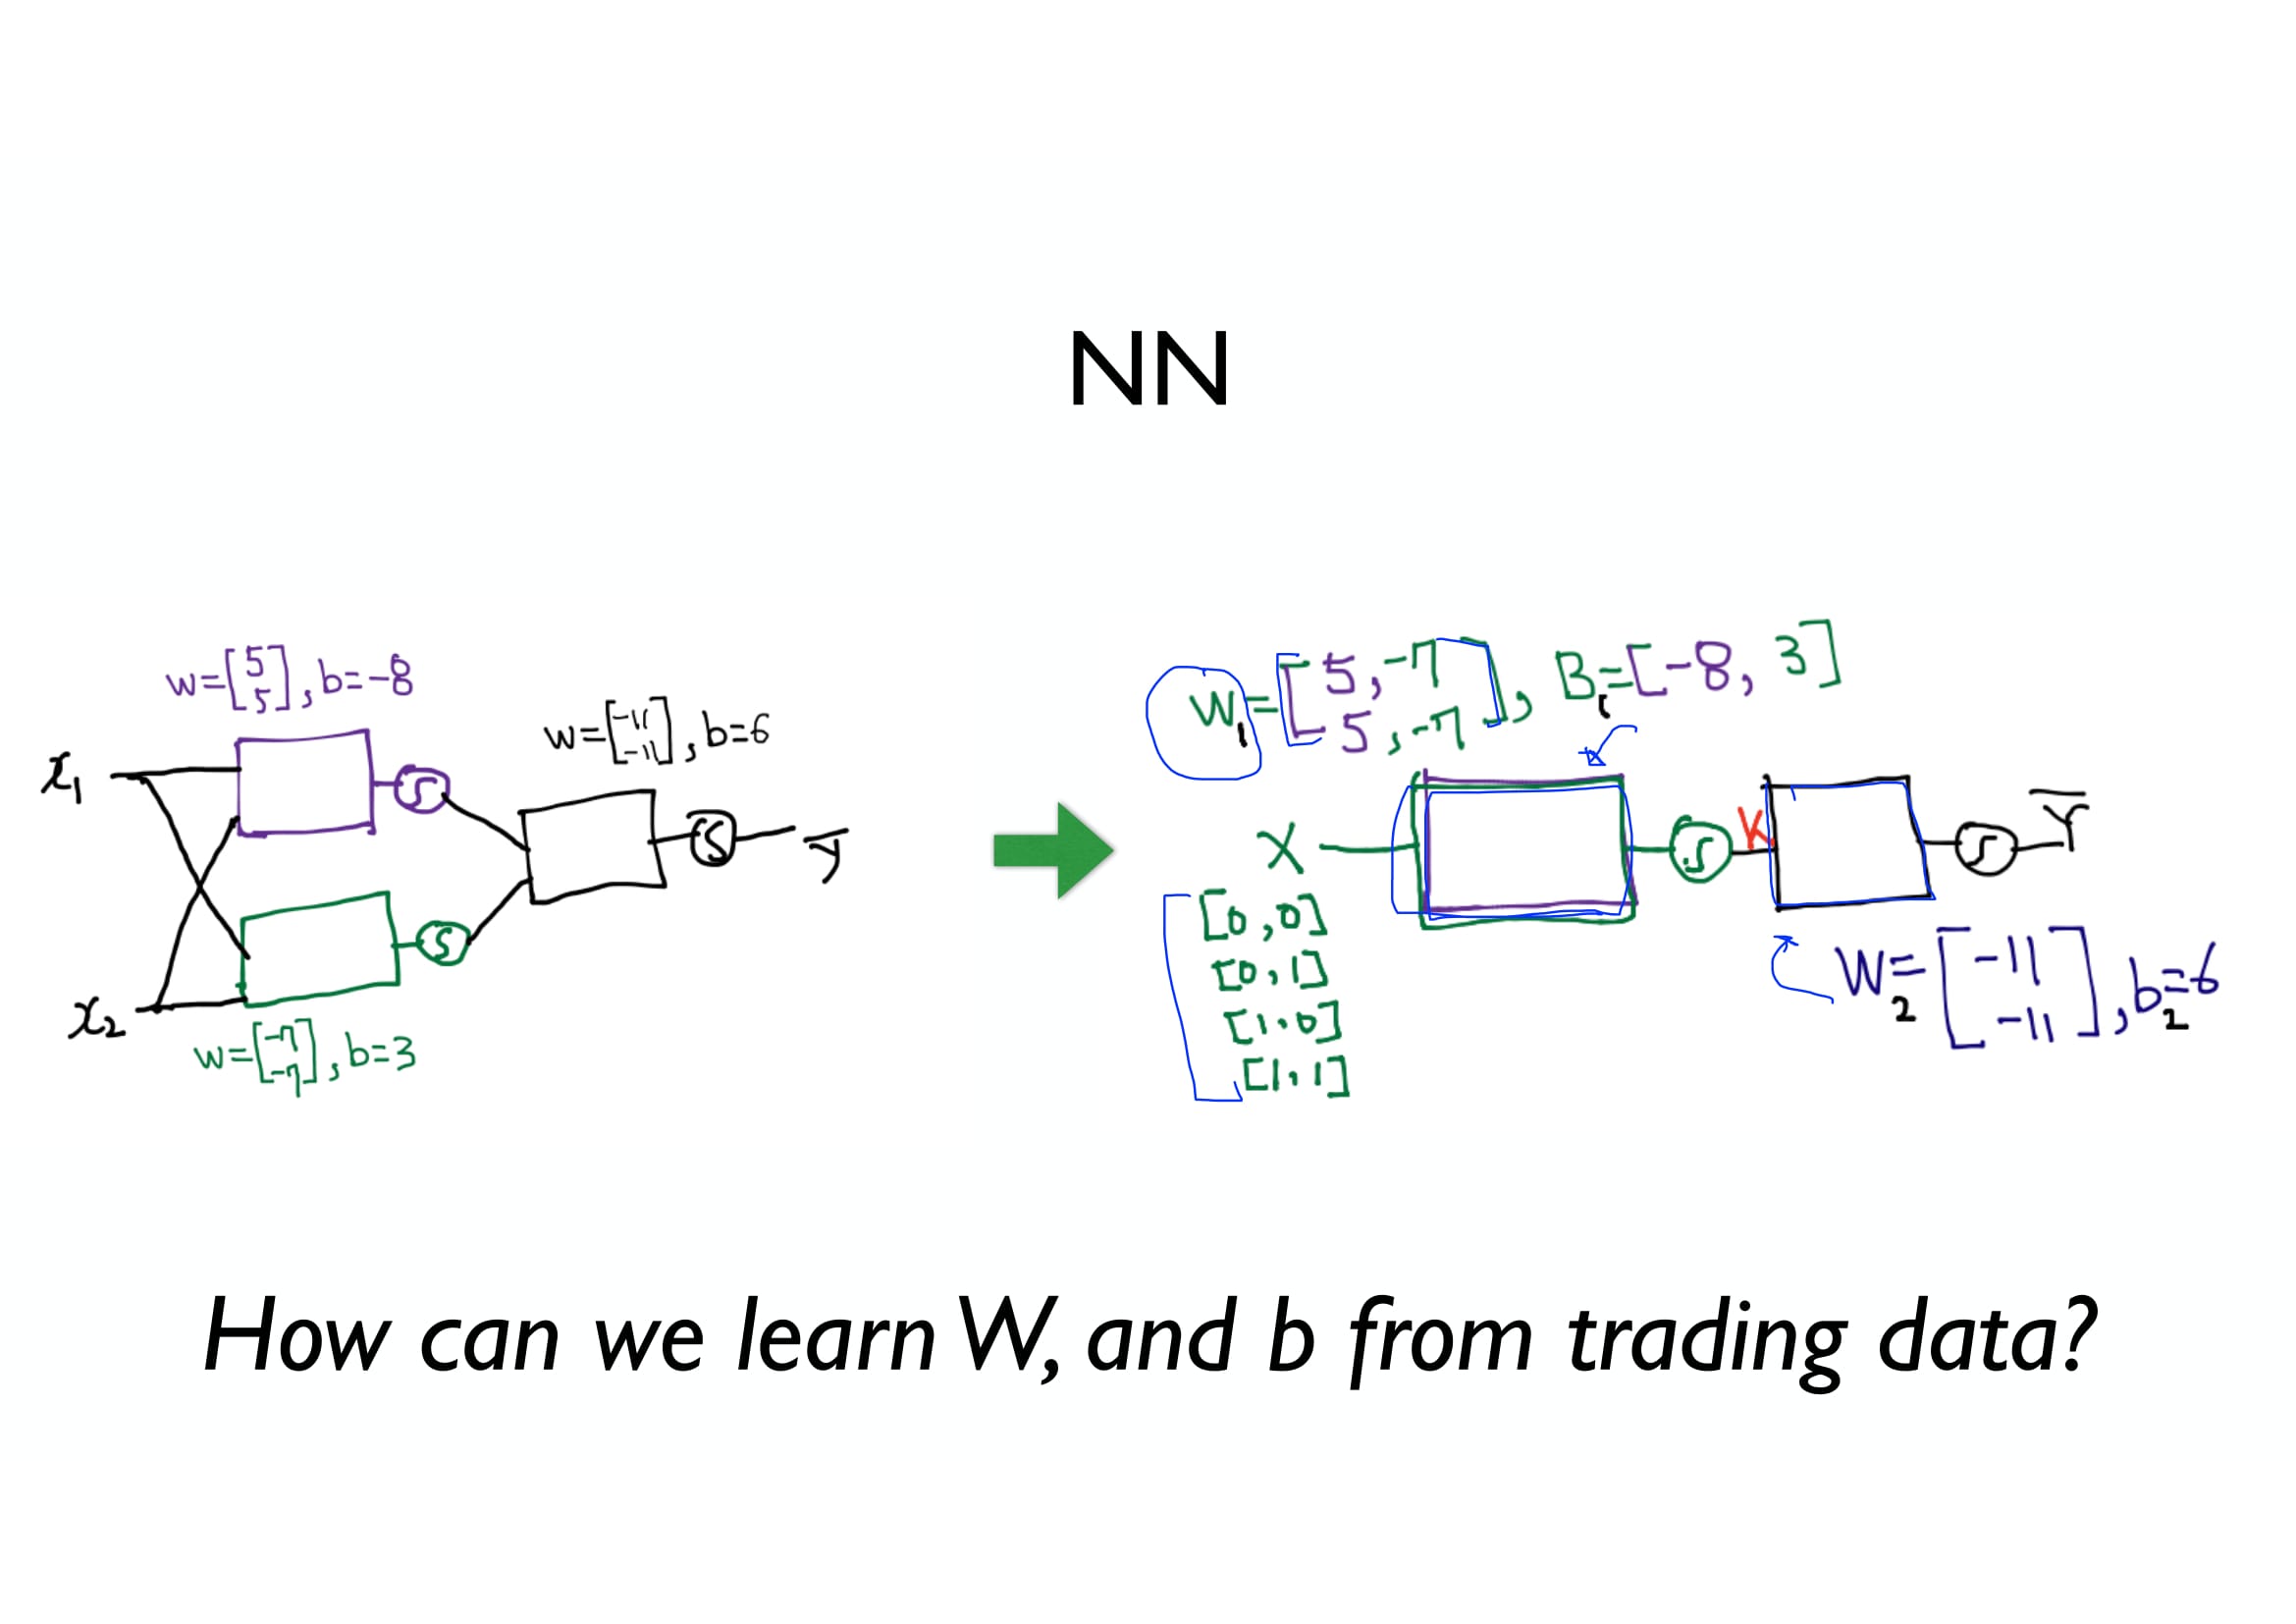 NN
w=[5 5], b=-8
w=[-11 -11], b=6
x1
S
S
ȳ
S
x2
w=[-7 -7], b=3
W1=[5,-7 5,-7], B1=[-8, 3]
X
S
K
S
Ȳ
[0,0]
[0,1]
[1,0]
[1,1]
W2=[-11 -11], b2=6
How can we learn W, and b from trading data?